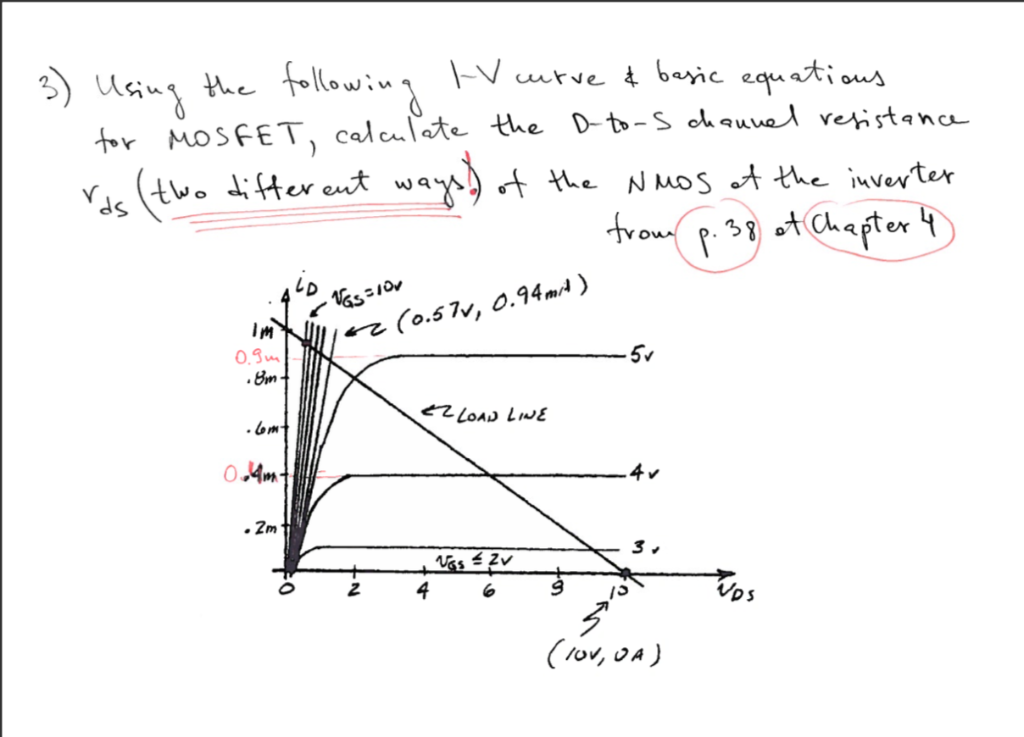 3) Using the following I-V curve & basic equations
for MOSFET, calculate the D-to-S channel resistance
rds (two different ways!) of the NMOS of the inverter
from p. 38 of Chapter 4
iD
VGS=10V
(0.57V, 0.94mA)
1m
0.9m
5V
.8m
LOAD LINE
.6m
0.4m
4V
.2m
3V
VGS ≤ 2V
0 2 4 6 8 10 VDS
(10V, 0A)